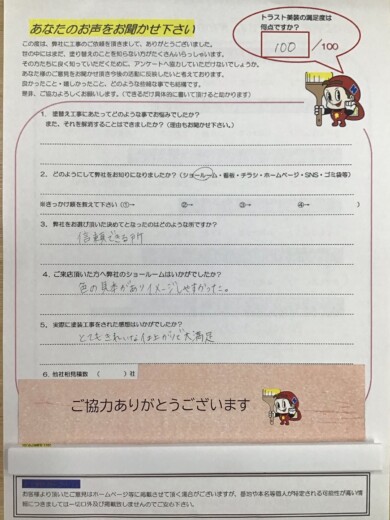 あなたのお声をお聞かせ下さい
トラスト美装の満足度は
何点ですか？
100 /100
この度は、弊社に工事のご依頼を頂きまして、ありがとうございました。
世の中にはまだ、塗り替えのことを知らない方がたくさんいらっしゃいます。
その方たちに良く知っていただくために、アンケートへ協力していただけないでしょうか。
あなた様のご意見をお聞かせ頂き今後の活動に反映したいと考えております。
良かったこと・嬉しかったこと、どのような些細な事でも結構です。
是非、ご協力よろしくお願いします。（できるだけ具体的に書いて頂けると助かります）
1．塗替え工事にあたってどのような事でお悩みでしたか？
また、それを解消することはできましたか？（理由もお聞かせ下さい。）
2．どのようにして弊社をお知りになりましたか？（ショールーム・看板・チラシ・ホームページ・SNS・ゴミ袋等）
※きっかけ順を教えて下さい（①→ ②→ ③→ ④→ ）
3．弊社をお選び頂いた決めてとなったのはどのような所ですか？
信頼できる所
4．ご来店頂いた方へ弊社のショールームはいかがでしたか？
色の見本がありイメージしやすかった。
5．実際に塗装工事をされた感想はいかがでしたか？
とてもきれいな仕上がりで大満足
6．他社相見積数（ ）社
ご協力ありがとうございます
お客様より頂いたご意見はホームページ等に掲載させて頂く場合がございますが、番地や本名等個人が特定される可能性が高い情
報につきましては一切口外及び掲載致しませんのでご安心下さい。